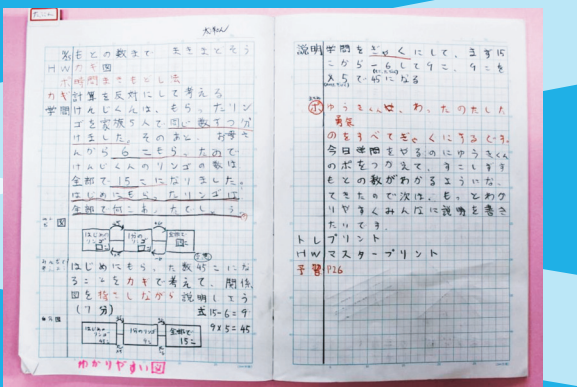 名 もとの数まで まきまどそう
HW カギ 図
時間まきもどし法
カギ 計算を反対にして考える
学問 けんじくんは、もらったリン
ゴを家族5人で同じ数ずつ分
けました。そのあと、お母さ
んから6こもらったので
けんじくんのリンゴの数は
全部で15こになりました。
はじめにもらったリンゴは
全部で何こあったでしょう
図
はじめの
リンゴ
1人分の
リンゴ
全部で
はじめにもらった数45こにな
ることをカギで考えて、関係
図を指さしながら説明してう
(7分) 式15-6=9
9×5=45
はじめの
リンゴ
1人分のリンゴ
全部で
15こ
わかりやすい図
説明 学問をぎゃくにして、まず15
こから-6して9こ、9こを
×5で45になる
ポ ゆうきくんは、わったのたした
のをすべてぎゃくにするです。
今日学問をやるのにゆうきくん
のポをつかえて、すこしずず
もとの数がわかるようにな
てきたので次は、もっとわか
りやすくみんなに説明を書き
たいです。
トレプリント
HW マスタープリント
予習 P26